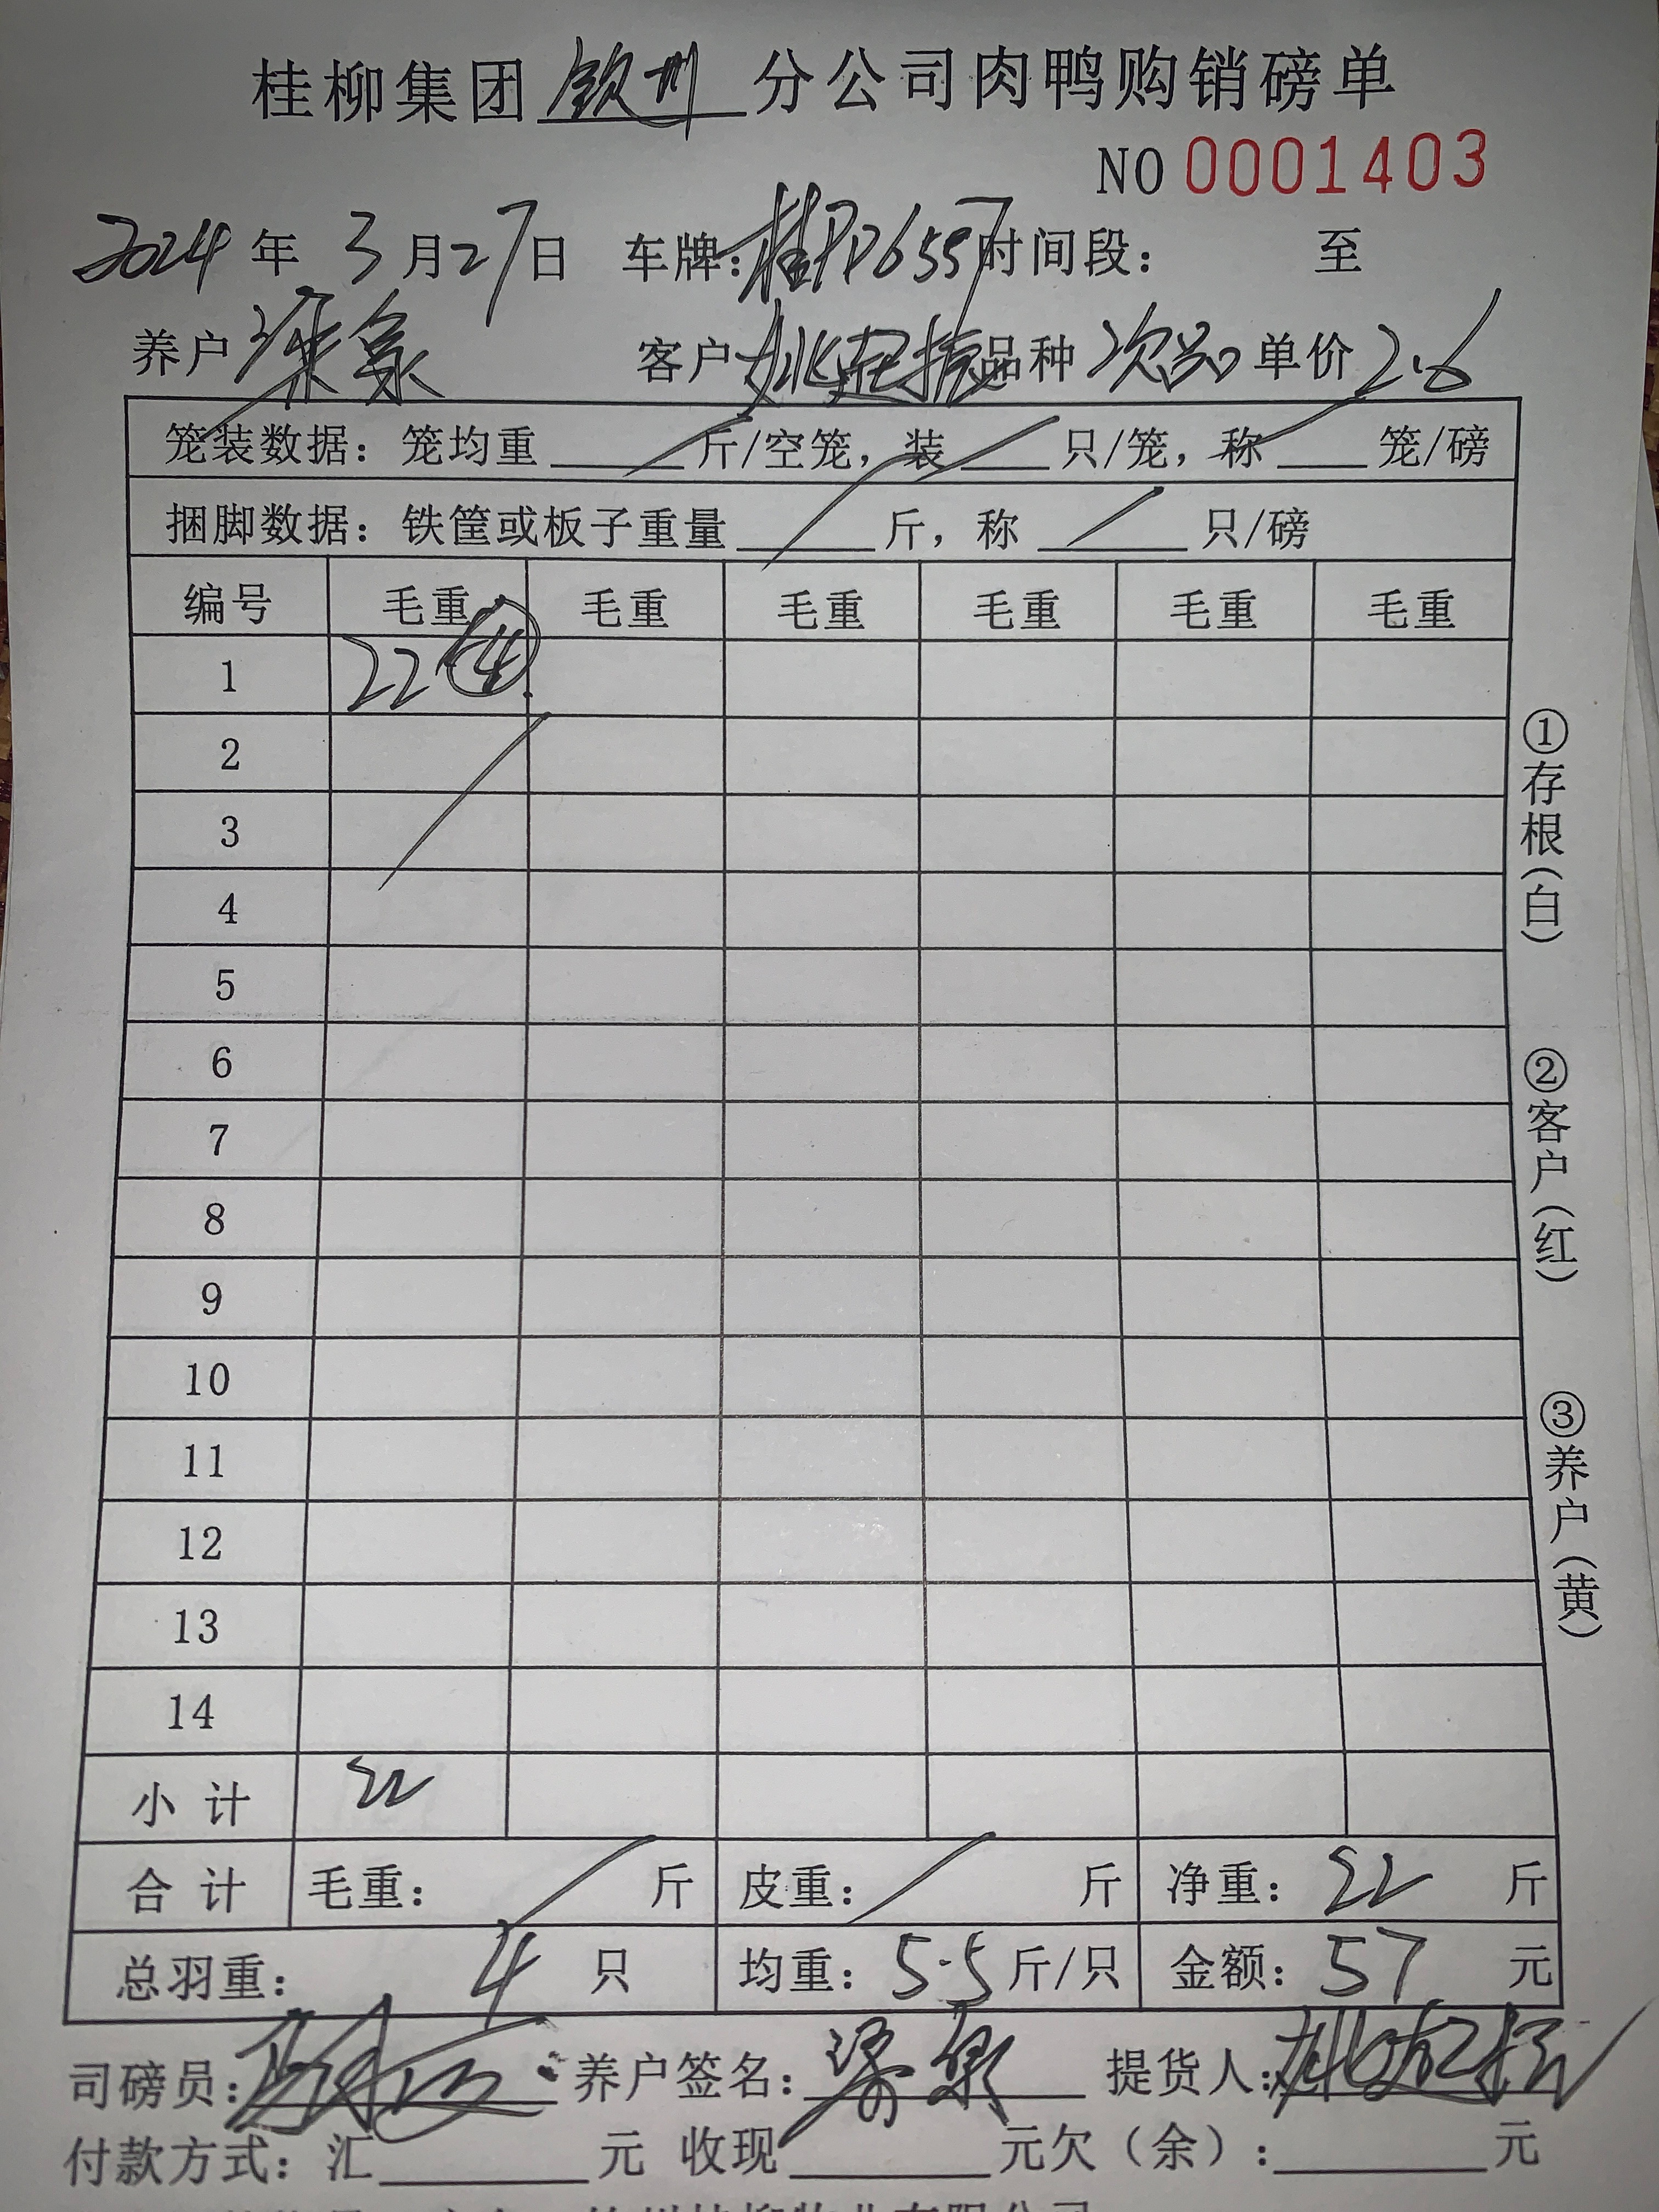 桂柳集团 钦州 分公司肉鸭购销磅单
NO 0001403
2024 年 3 月 27 日 车牌: 时间段: 至
养户 梁泉 客户 品种 次品 单价 2.6
笼装数据: 笼均重 / 斤/空笼, 装 / 只/笼, 称 / 笼/磅
捆脚数据: 铁筐或板子重量 / 斤, 称 / 只/磅
编号 毛重 毛重 毛重 毛重 毛重 毛重
1 22 ④
2
3
4
5
6
7
8
9
10
11
12
13
14
小 计 22
合 计 毛重: / 斤 皮重: / 斤 净重: 22 斤
总羽重: 4 只 均重: 5.5 斤/只 金额: 57 元
司磅员: 养户签名: 梁泉 提货人:
付款方式: 汇 元 收现 元欠（余）: 元
①存根（白）
②客户（红）
③养户（黄）